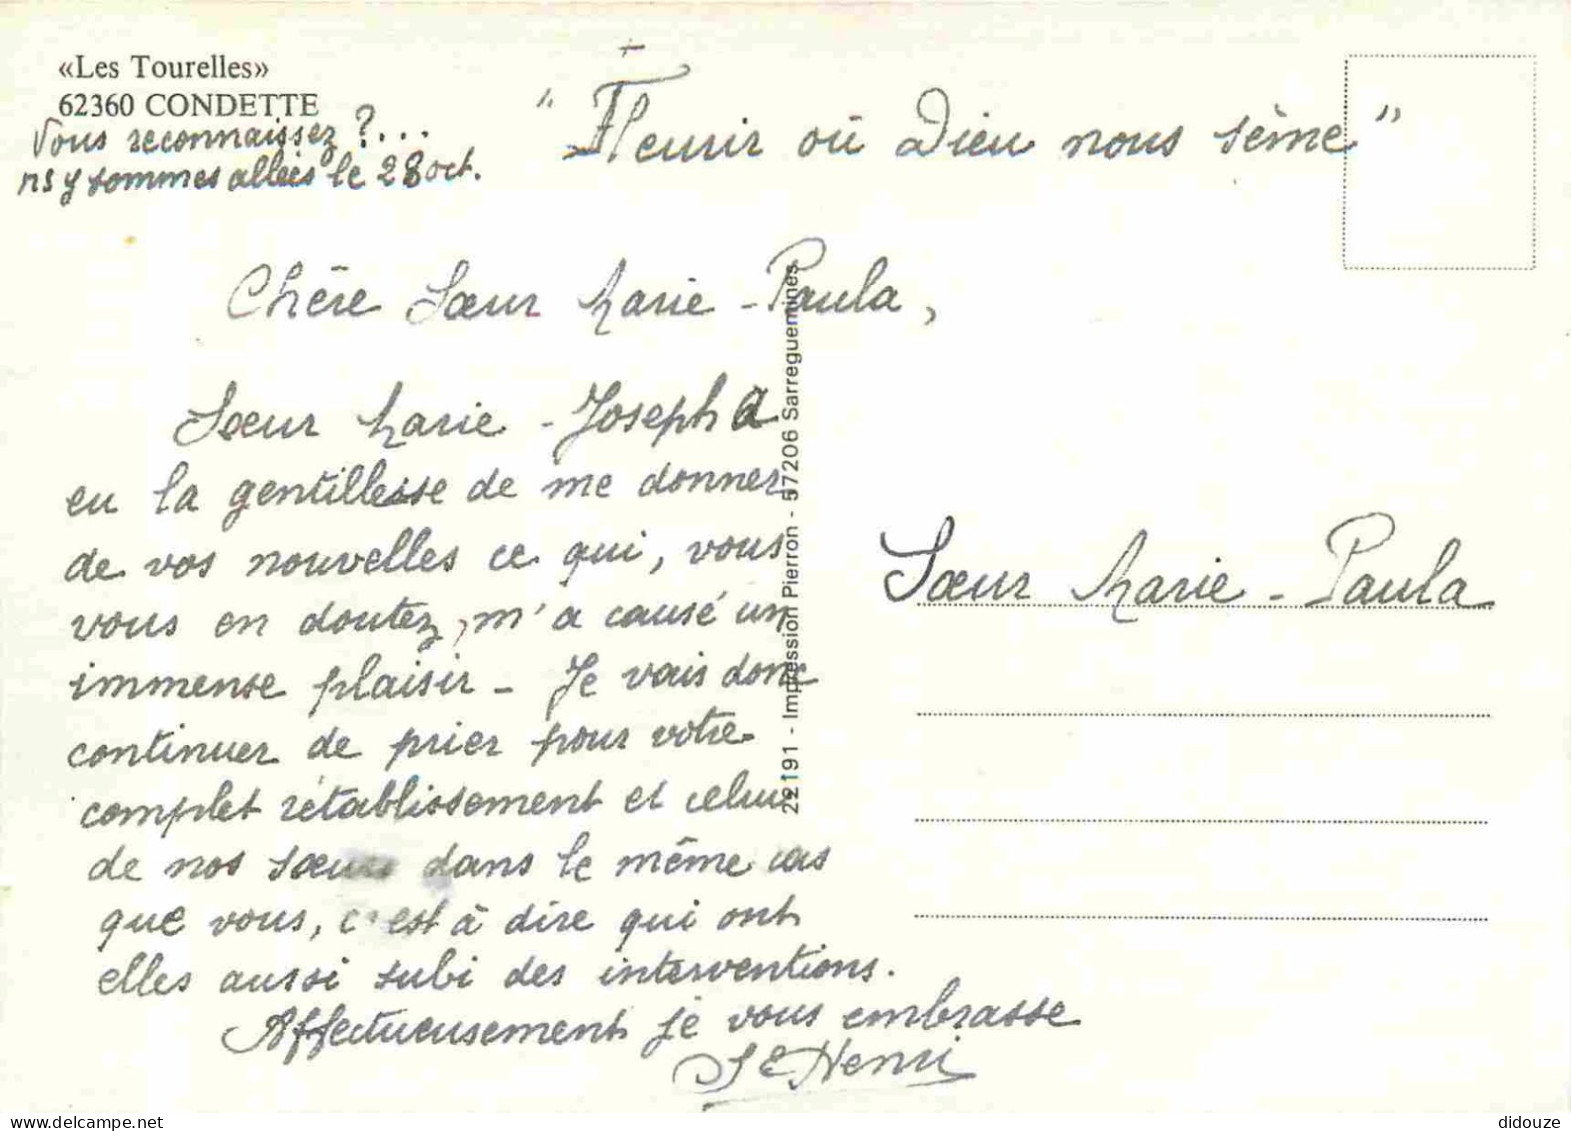 «Les Tourelles»
62360 CONDETTE
Vous reconnaissez ?...
ns y sommes allées le 28 oct.
" Fleurir où Dieu nous sème "
Chère Sœur Marie - Paula,
Sœur Marie - Joseph a
eu la gentillesse de me donner
de vos nouvelles ce qui, vous
vous en doutez, m'a causé un
immense plaisir - Je vais donc
continuer de prier pour votre
complet rétablissement et celui
de nos sœurs dans le même cas
que vous, c'est à dire qui ont
elles aussi subi des interventions.
Affectueusement je vous embrasse
Sr Henri
22191 - Impression Pierron - 57206 Sarreguemines
Sœur Marie - Paula
didouze